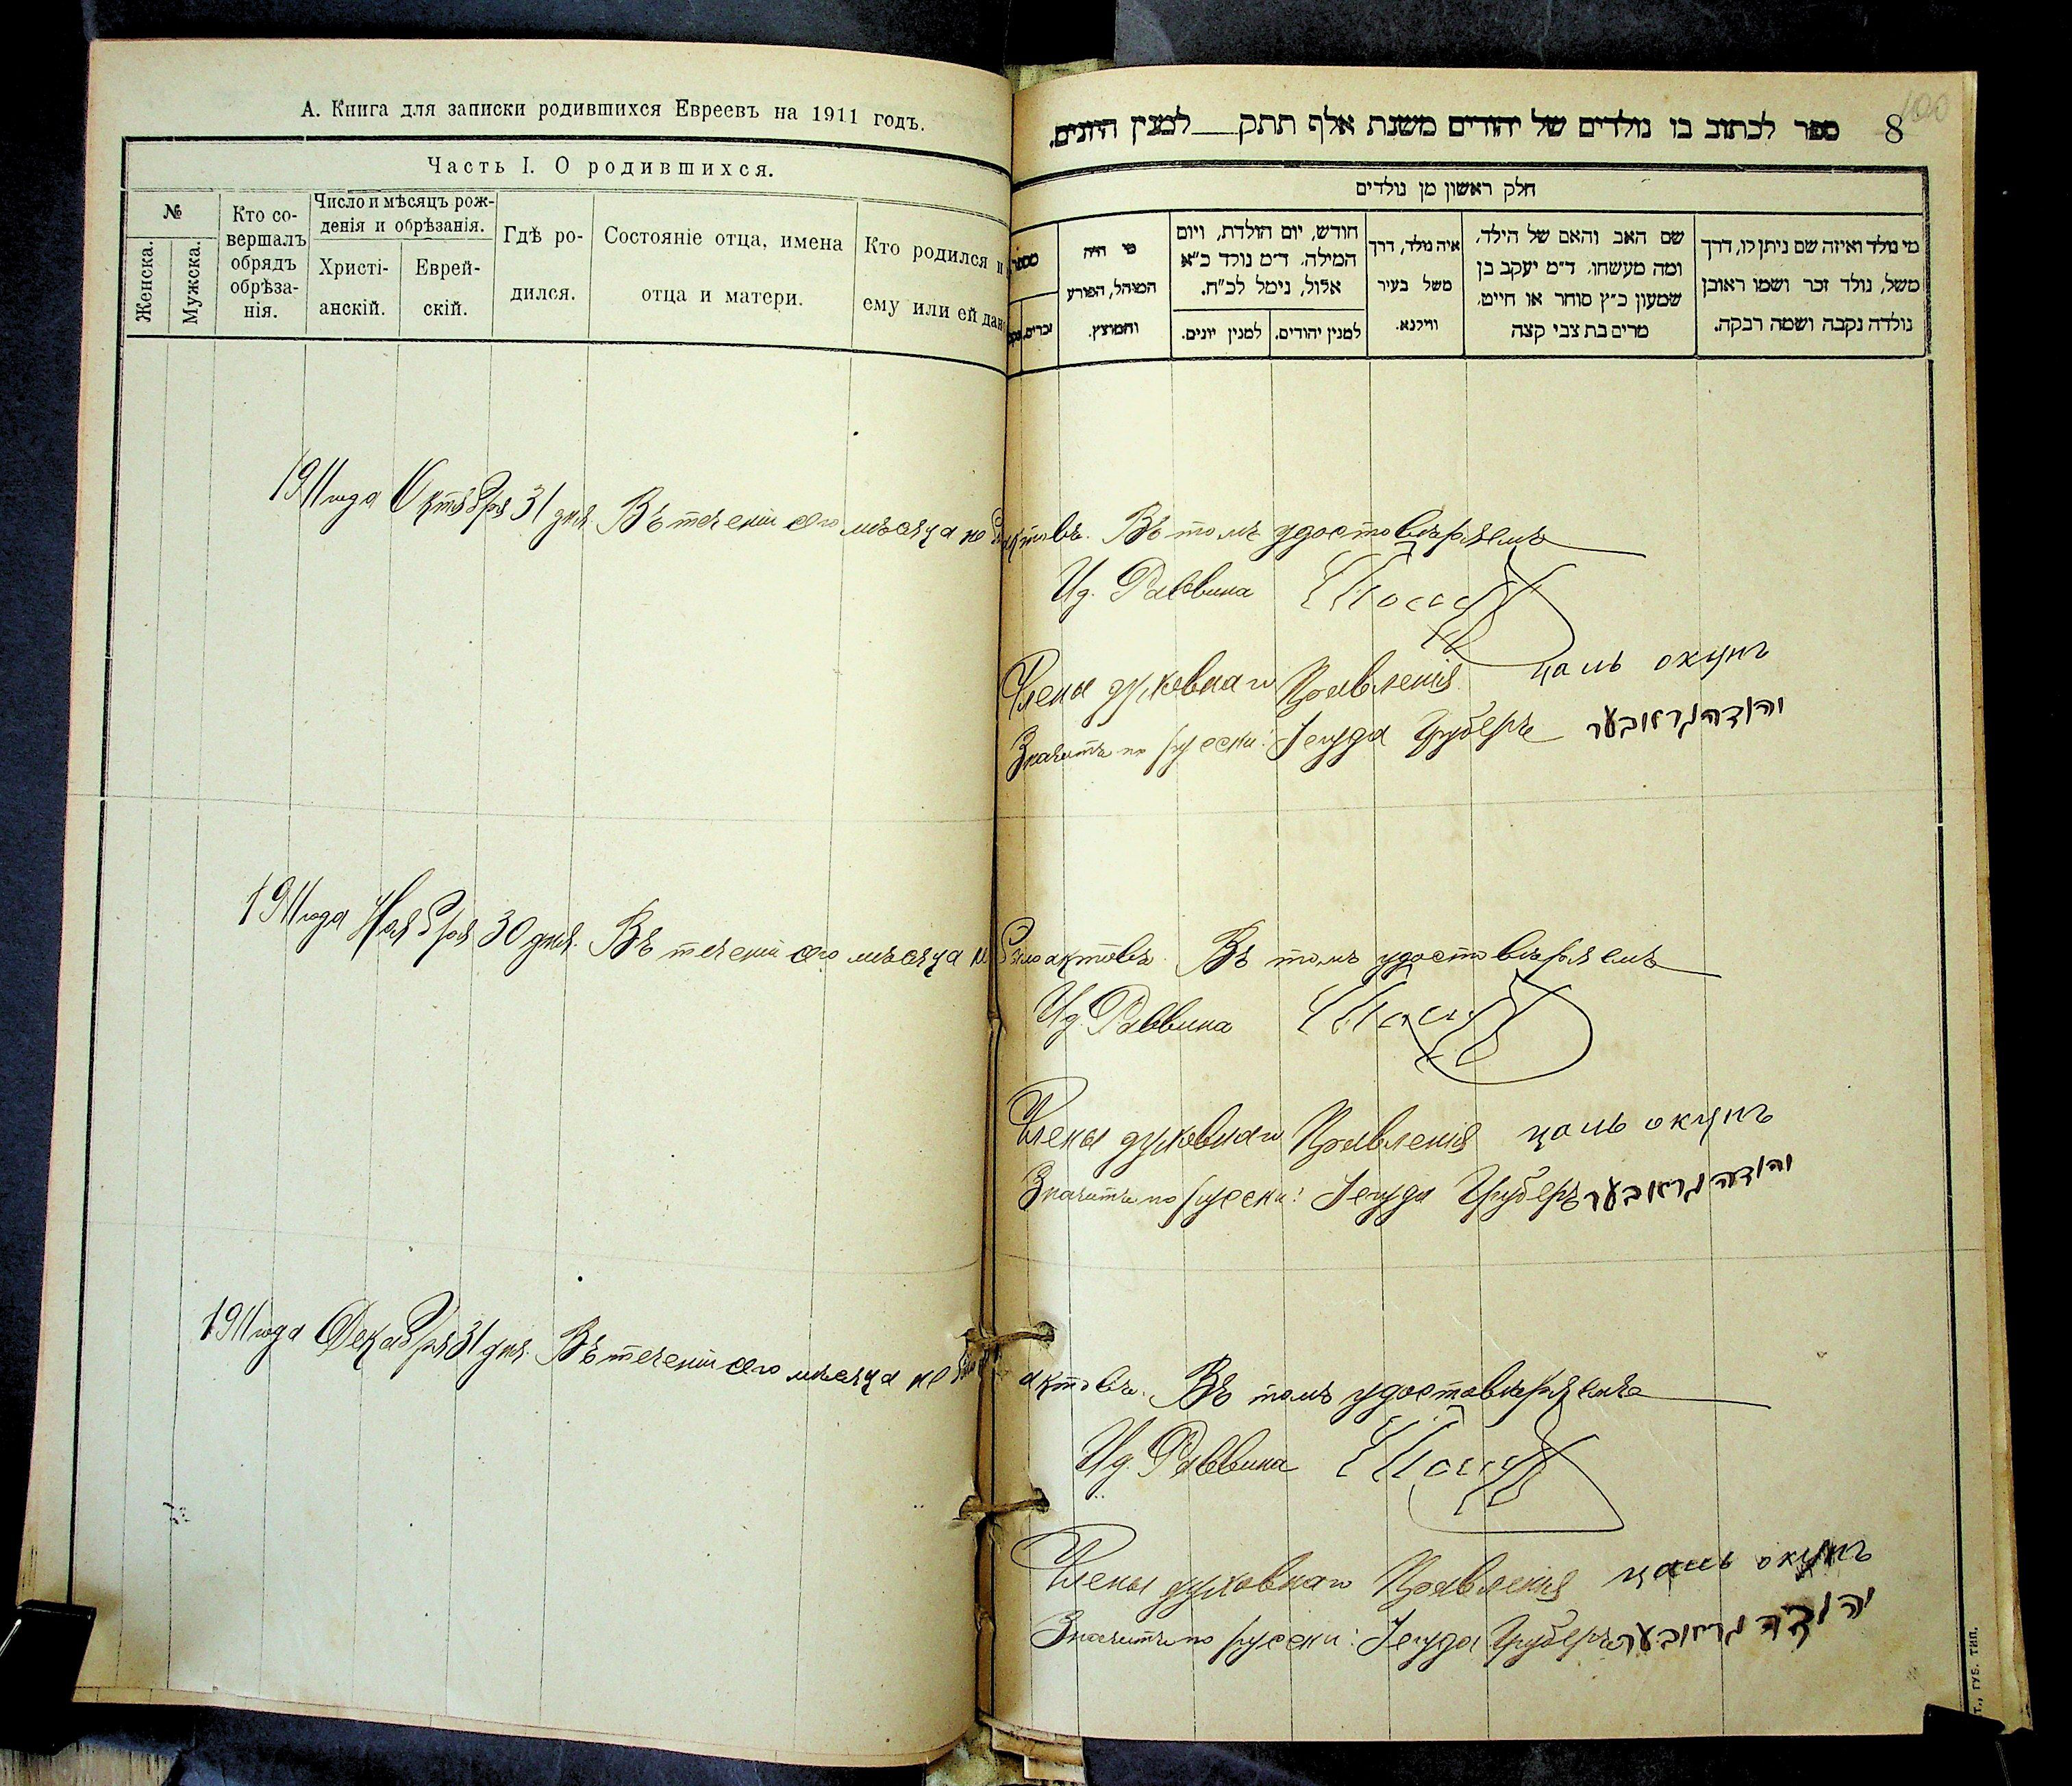 А. Книга для записки родившихся Евреевъ на 1911 годъ.
Часть I. О родившихся.
№
Женска.
Мужска.
Кто со-
вершалъ
обрядъ
обрѣза-
нія.
Число и мѣсяцъ рож-
денія и обрѣзанія.
Христі-
анскій.
Еврей-
скій.
Гдѣ ро-
дился.
Состояніе отца, имена
отца и матери.
Кто родился и
ему или ей дан
100
8
ספר לכתוב בו נולדים של יהודים משנת אלף תתק למנין היונים.
חלק ראשון מן נולדים
מי נולד ואיזה שם ניתן לו, דרך
משל, נולד זכר ושמו ראובן
נולדה נקבה ושמה רבקה.
שם האב והאם של הילד,
ומה מעשחו. ד״מ יעקב בן
שמעון כ״ץ סוחר או חייט.
מרים בת צבי קצה
איה נולד, דרך
משל בעיר
ווילנא.
חודש, יום הולדת, ויום
המילה. ד״מ נולד כ״א
אלול, נימל לכ״ח.
למנין יהודים.
למנין יונים.
מי היה
המוהל, הפורע
והמוצץ.
מספר
זכרים.
1911 года Октября 31 дня. Въ теченіи сего мѣсяца не актовъ. Въ томъ удостовѣряемъ
И д. Раввина
Члены духовнаго Правленія цаль окунь
Значитъ по русски: Іегуда Груберъ יהודה גראובער
1911 года Ноября 30 дня. Въ теченіи сего мѣсяца не было актовъ. Въ томъ удостовѣряемъ
И д. Раввина
Члены духовнаго Правленія цаль окунь
Значитъ по русски: Іегуда Груберъ יהודה גראובער
1911 года Декабря 31 дня. Въ теченіи сего мѣсяца не было актовъ. Въ томъ удостовѣряемъ
И д. Раввина
Члены духовнаго Правленія цаль окунь
Значитъ по русски: Іегуда Груберъ יהודה גראובער
ГУБ. ТИП.